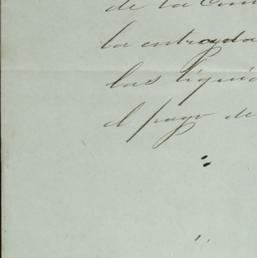 de la
la entrada
las
el pago de